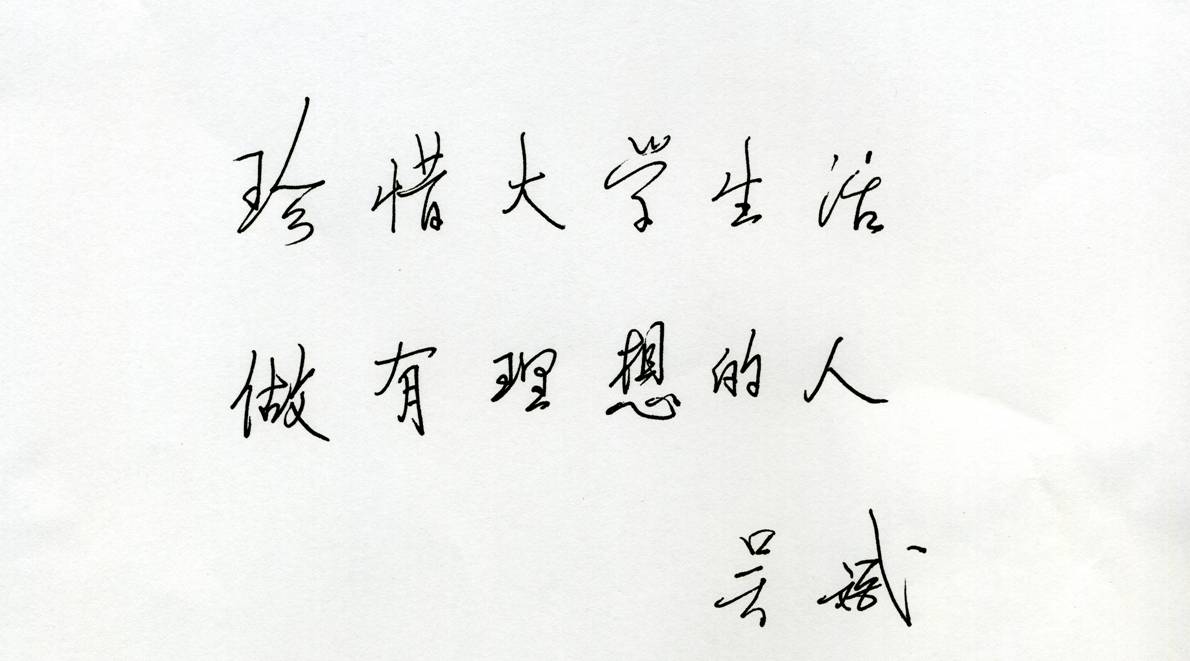 珍惜大学生活
做有理想的人
吴斌